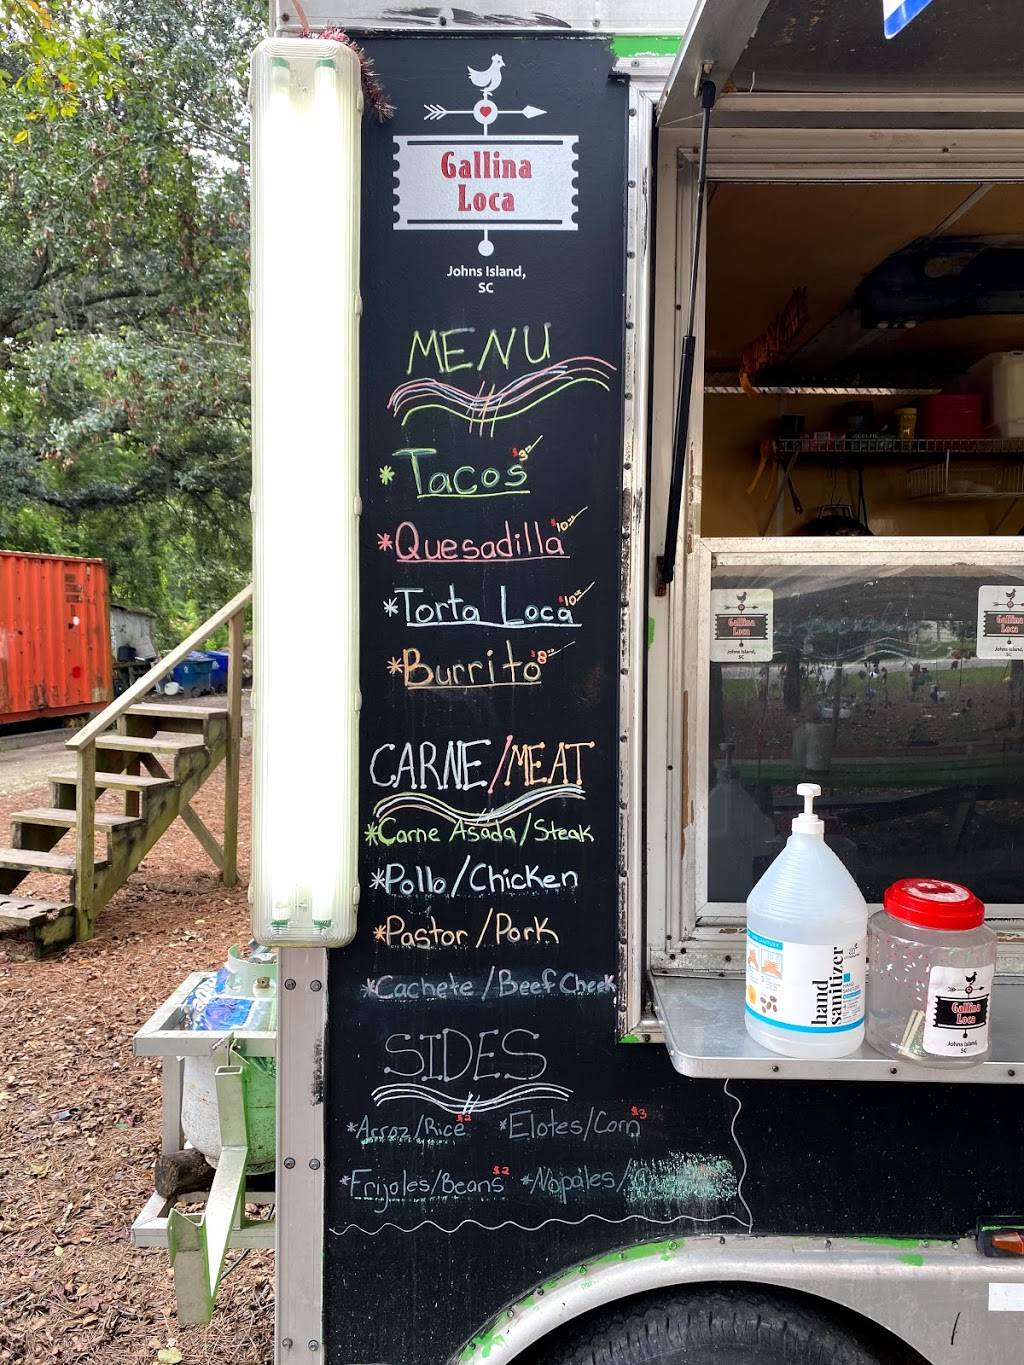 Gallina
Loca
Johns Island,
SC
MENU
*Tacos $3.00
*Quesadilla $10.00
*Torta Loca $10.00
*Burrito $8.00
CARNE/MEAT
*Carne Asada/Steak
*Pollo/Chicken
*Pastor/Pork
*Cachete/Beef Cheek
SIDES
*Arroz/Rice $2 *Elotes/Corn $3
*Frijoles/Beans $2 *Nopales/
Gallina
Loca
Johns Island,
SC
Gallina
Loca
Johns Island,
SC
hand
sanitizer
Gallina
Loca
Johns Island,
SC